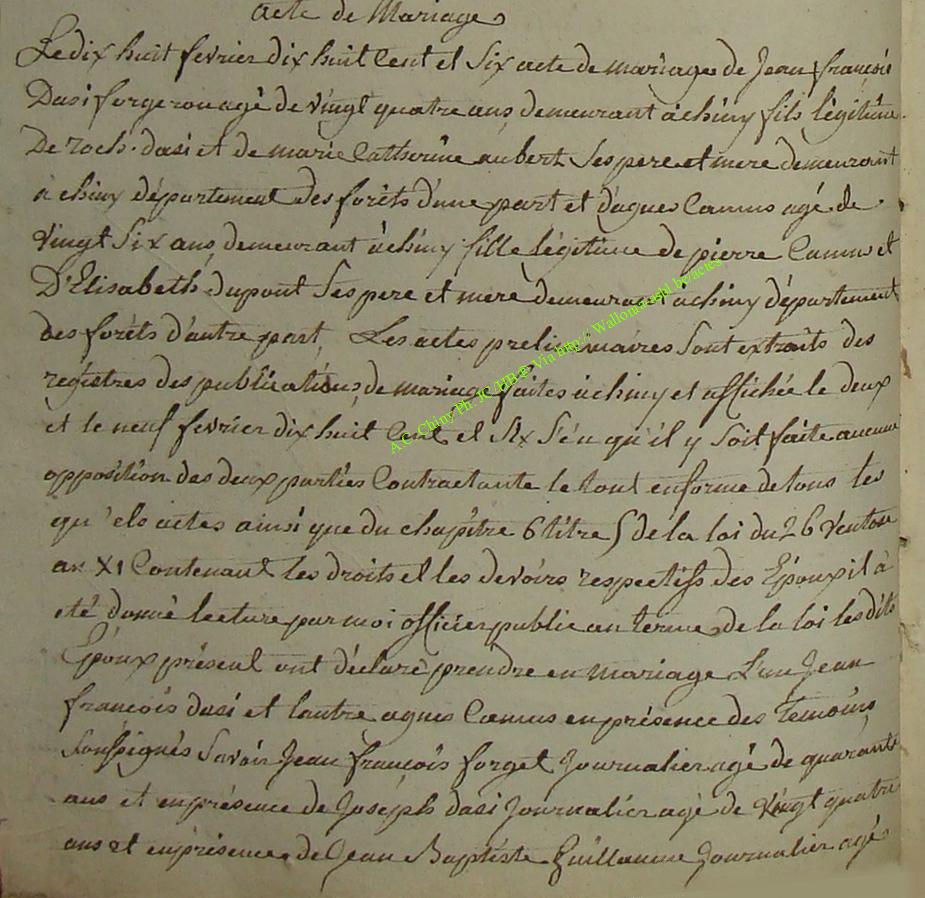 acte de Mariage
Le dix huit fevrier dix huit Cent et Six acte de mariage de Jean françois
Dasi forgeron agé de vingt quatre ans, demeurant à chiny fils légitime
De roch. dasi et de marie Catherine aubert Ses pere et mere demeurant
à chiny département des forêts d'une part et d'agnes Camus agé de
vingt Six ans, demeurant à chiny fille légitime de pierre Camus et
D'Elisabeth dupont Ses pere et mere demeurant a chiny département
des forêts d'autre part, Les actes preliminaires Sont extraits des
régistres des publications, de mariage faites à chiny et affichée le deux
et le neuf fevrier dix huit Cent et Six S'en qu'il y Soit faite aucune
opposition des deux parties Contractante le tout en forme de tous les
qu'els actes ainsi que du chapitre 6 titre 5 de la loi du 26 Ventose
an XI Contenant les droits et les devoirs respectifs des Epoux il à
eté donné lecture par moi officier public au terme de la loi les dits
Epoux présent ont déclaré prendre en mariage L'un Jean
françois dasi et lautre agnes Camus en présence des temoins
Soussignés Savoir Jean françois forget Journalier agé de quarante
ans et en présence de Joseph dasi Journalier agé de vingt quatre
ans et en présence de Jean Baptiste Guillaume Journalier agé
A.C. Chiny Ph. JC HB @ Via http:// Wallonica